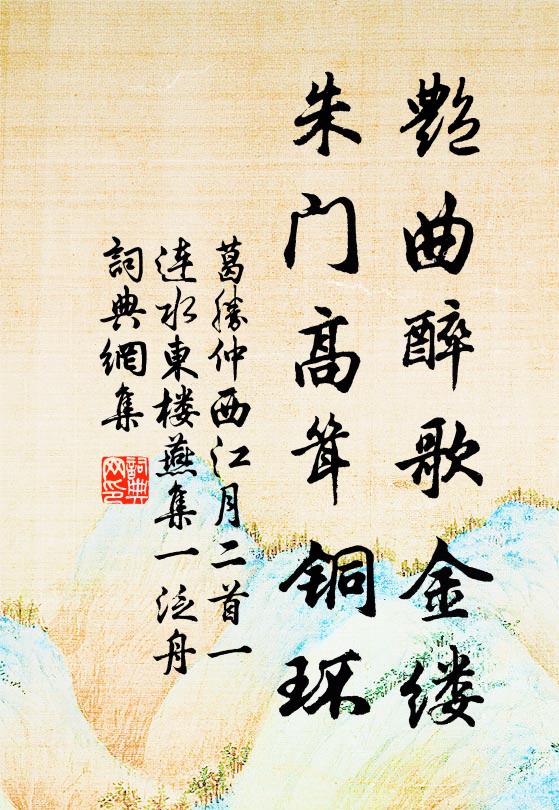 艷曲醉歌金缕
朱门高耸铜环
葛勝仲西江月二首一
涟水東楼燕集一泛舟
詞典網集
詞典网印